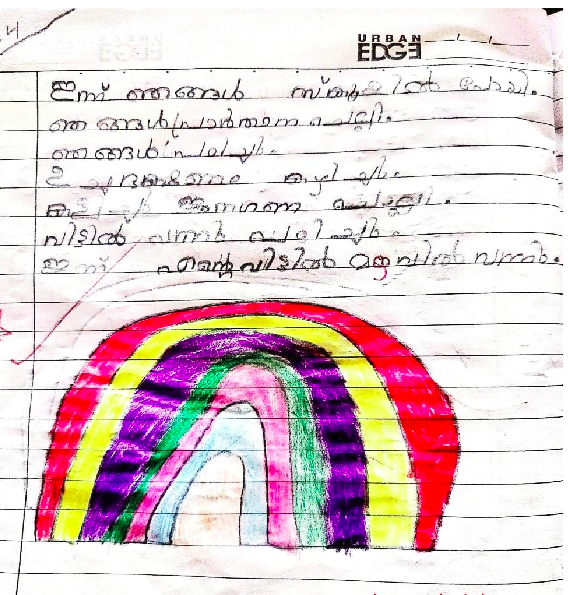 24
URBAN
EDGE
ഇന്ന് ഞങ്ങൾ സ്കൂളിൽ പോയി.
ഞങ്ങൾ പ്രാർത്ഥന ചെല്ലി.
ഞങ്ങൾ പഠിച്ചു.
ഉച്ചഭക്ഷണം കഴിച്ചു.
ജനഗണ ചൊല്ലി.
വിട്ടിൽ വന്നൂ പഠിച്ചു.
ഇന്ന് എന്റെ വിട്ടിൽ മഴവിൽ വന്നൂ.